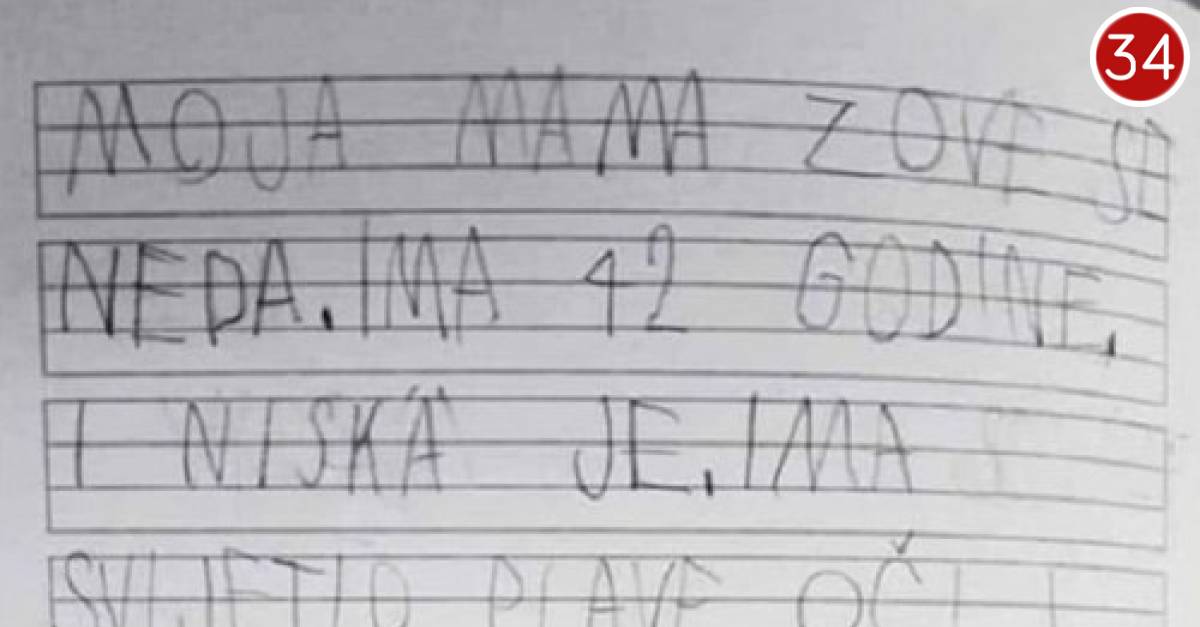 34
MOJA MAMA ZOVE SE
NEDA. IMA 42 GODINE.
I NISKA JE. IMA
SVIJETLO PLAVE OČI I